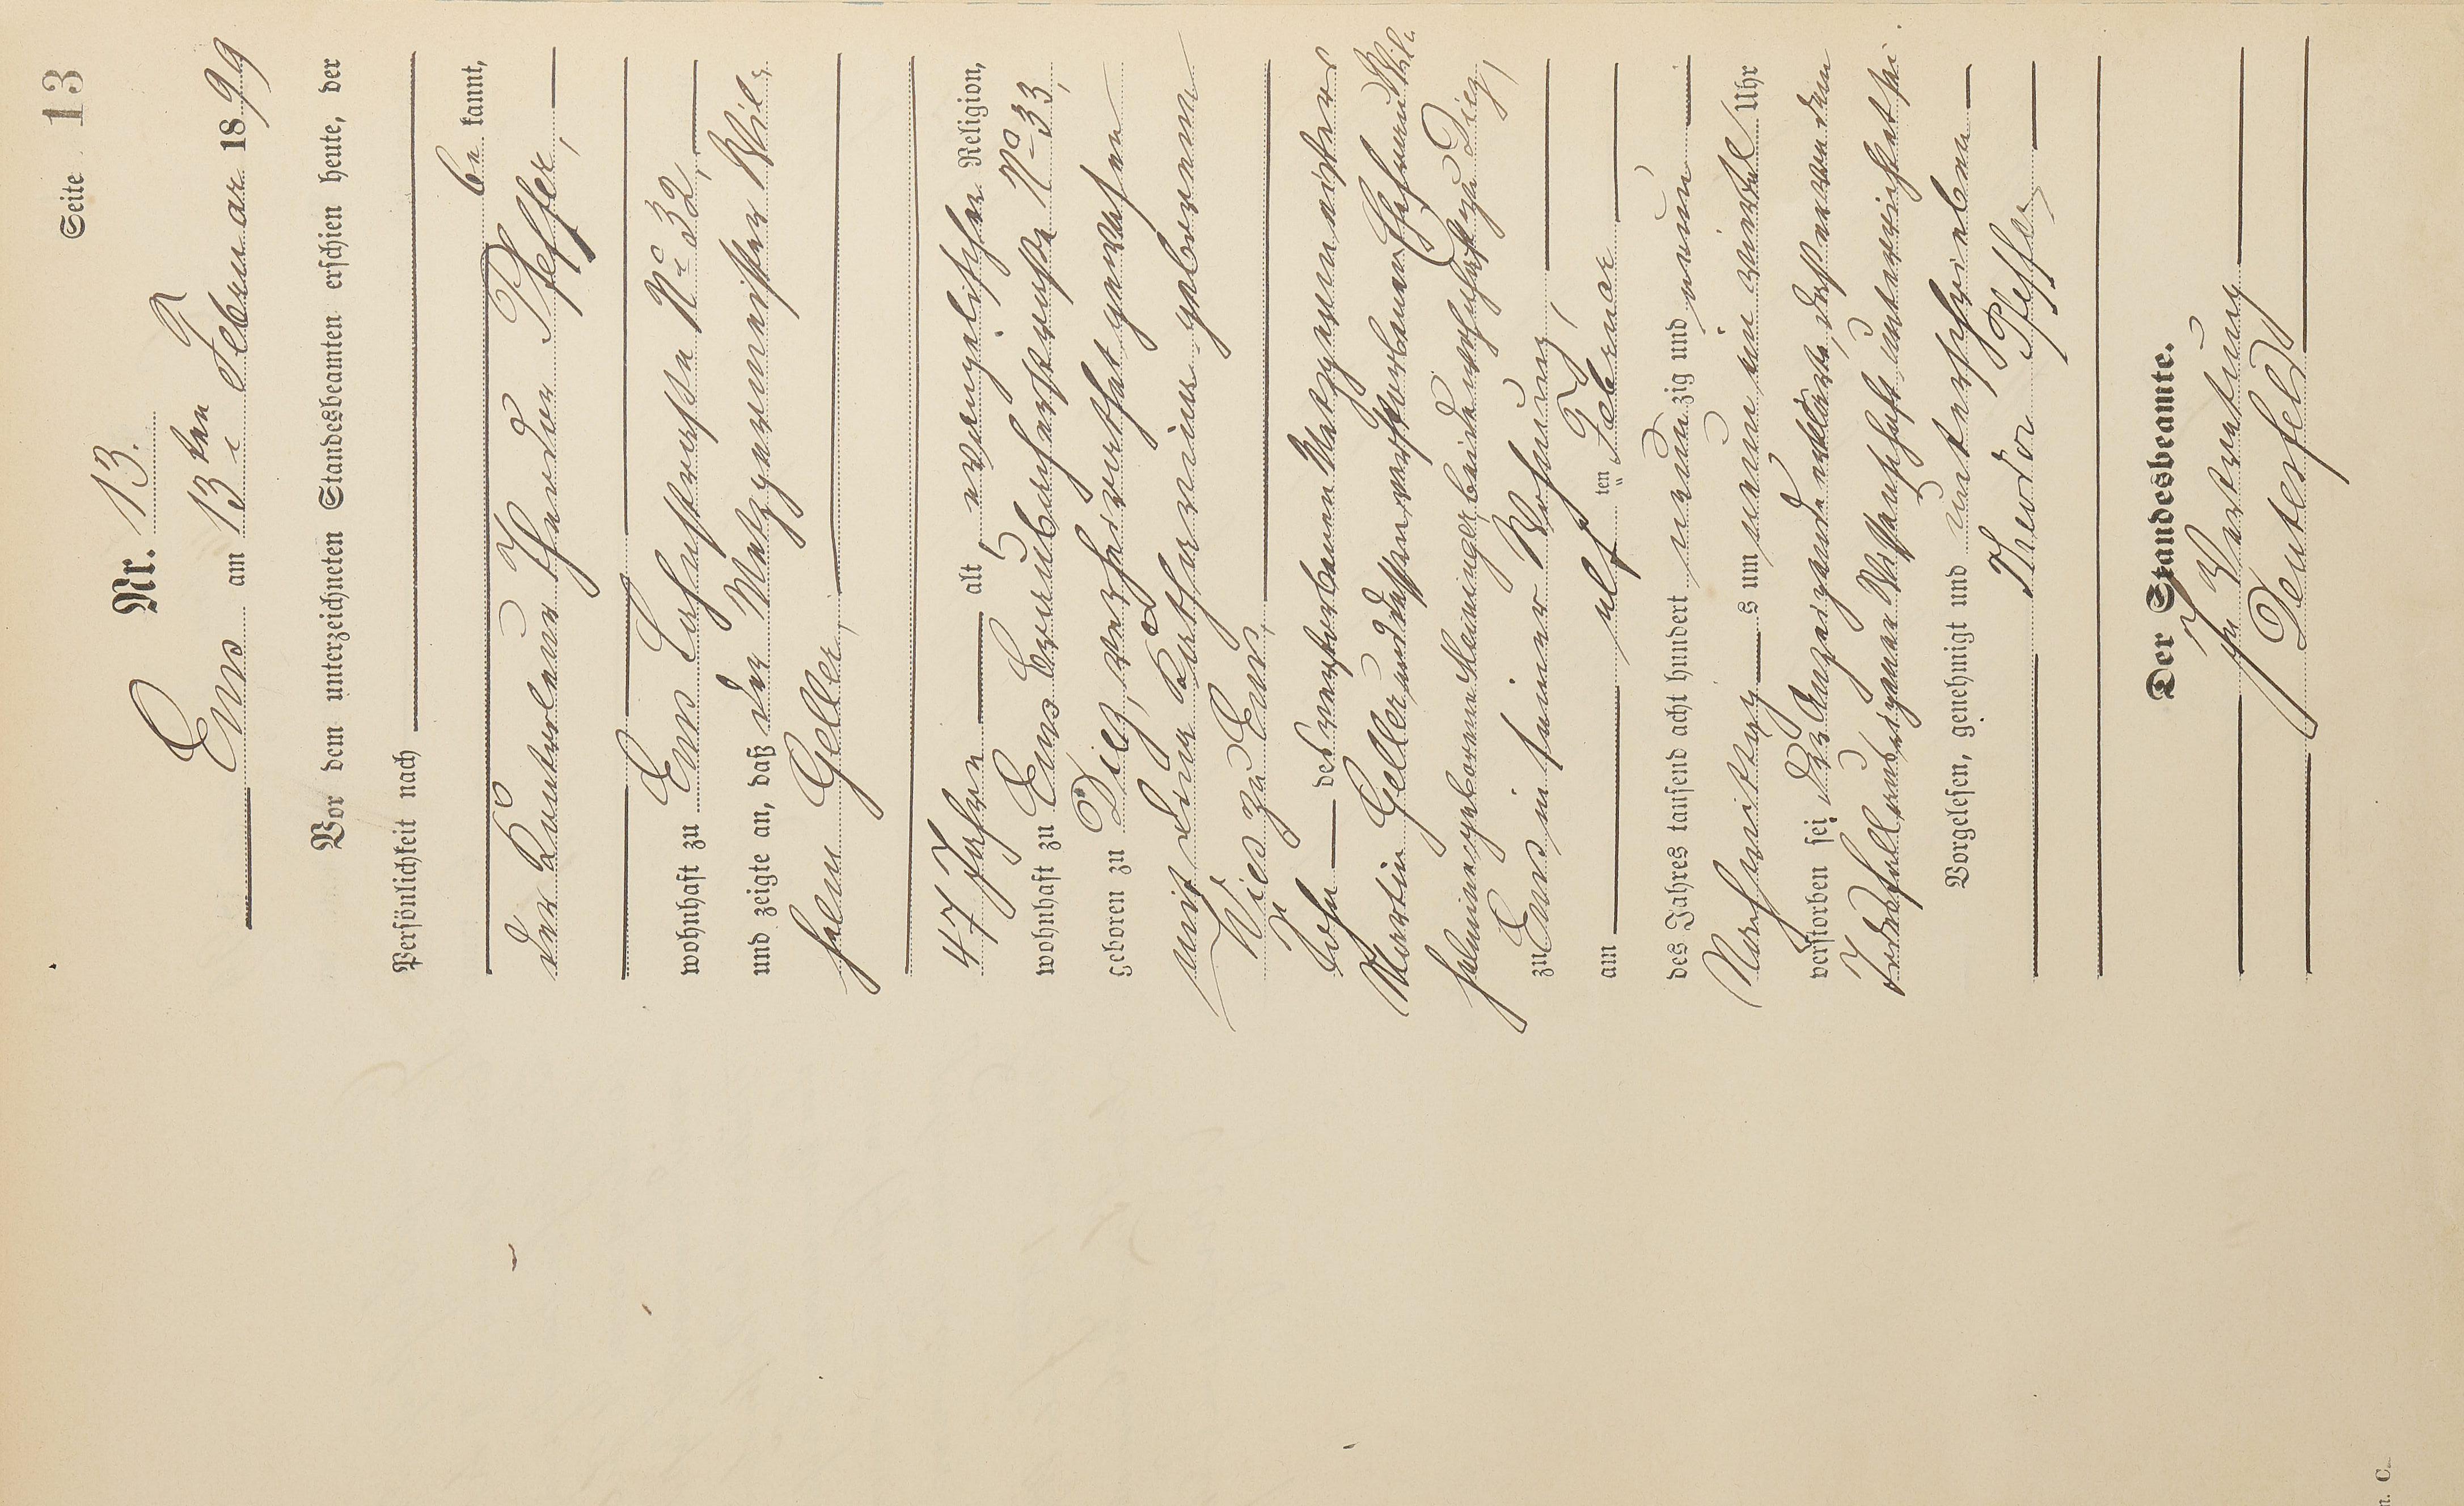 Seite 13
Nr. 13.
Ems am 13ten Februar 1899
Vor dem unterzeichneten Standesbeamten erschien heute, der
Persönlichkeit nach
be kannt,
der Theodor Pfeffer,
wohnhaft zu Ems No 32,
und zeigte an, daß der Metzgermeister Wil-
helm Geller,
47 Jahre alt, evangelischer Religion,
wohnhaft zu Ems Braubacherstraße No 33,
geboren zu Diez, verheirathet gewesen
mit Lina Katharina geborenen
zu Ems,
Sohn des verstorbenen Metzgermeisters
Martin Geller und dessen verstorbenen Ehefrau Wilhel-
helmine geborenen beide wohnhaft zu Diez,
zu Ems in seiner Wohnung,
am elf ten Februar
des Jahres tausend acht hundert neun zig und neun
Nachmittags um neun ein viertel Uhr
verstorben sei, der Anzeigende erklärte, daß er von dem
Todesfall aus eigener Wissenschaft unterrichtet sei.
Vorgelesen, genehmigt und unterschrieben
Theodor Pfeffer
Der Standesbeamte.
In Vertretung
n. C.